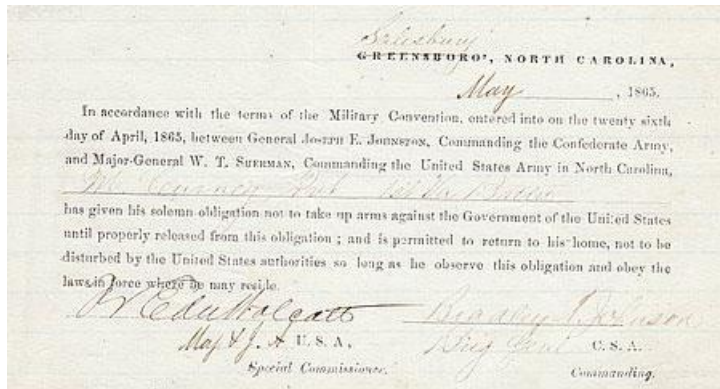 Salisbury
GREENSBORO', NORTH CAROLINA,
May , 1865.
In accordance with the terms of the Military Convention, entered into on the twenty sixth
day of April, 1865, between General JOSEPH E. JOHNSTON, Commanding the Confederate Army,
and Major-General W. T. SHERMAN, Commanding the United States Army in North Carolina,
has given his solemn obligation not to take up arms against the Government of the United States
until properly released from this obligation ; and is permitted to return to his home, not to be
disturbed by the United States authorities so long as he observe this obligation and obey the
laws in force where he may reside.
Bradley T. Johnson
Maj & J. A U. S. A, Brig Genl C. S. A.
Special Commissioner. Commanding.